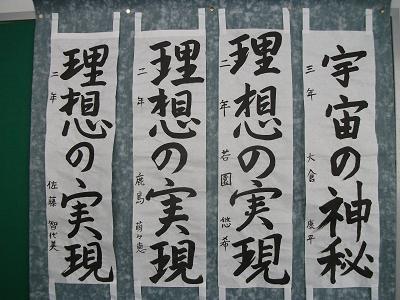 宇宙の神秘
三年 大倉 康平
理想の実現
二年 若園 悠希
理想の実現
二年 鹿島 萌々恵
理想の実現
二年 佐藤 智代美